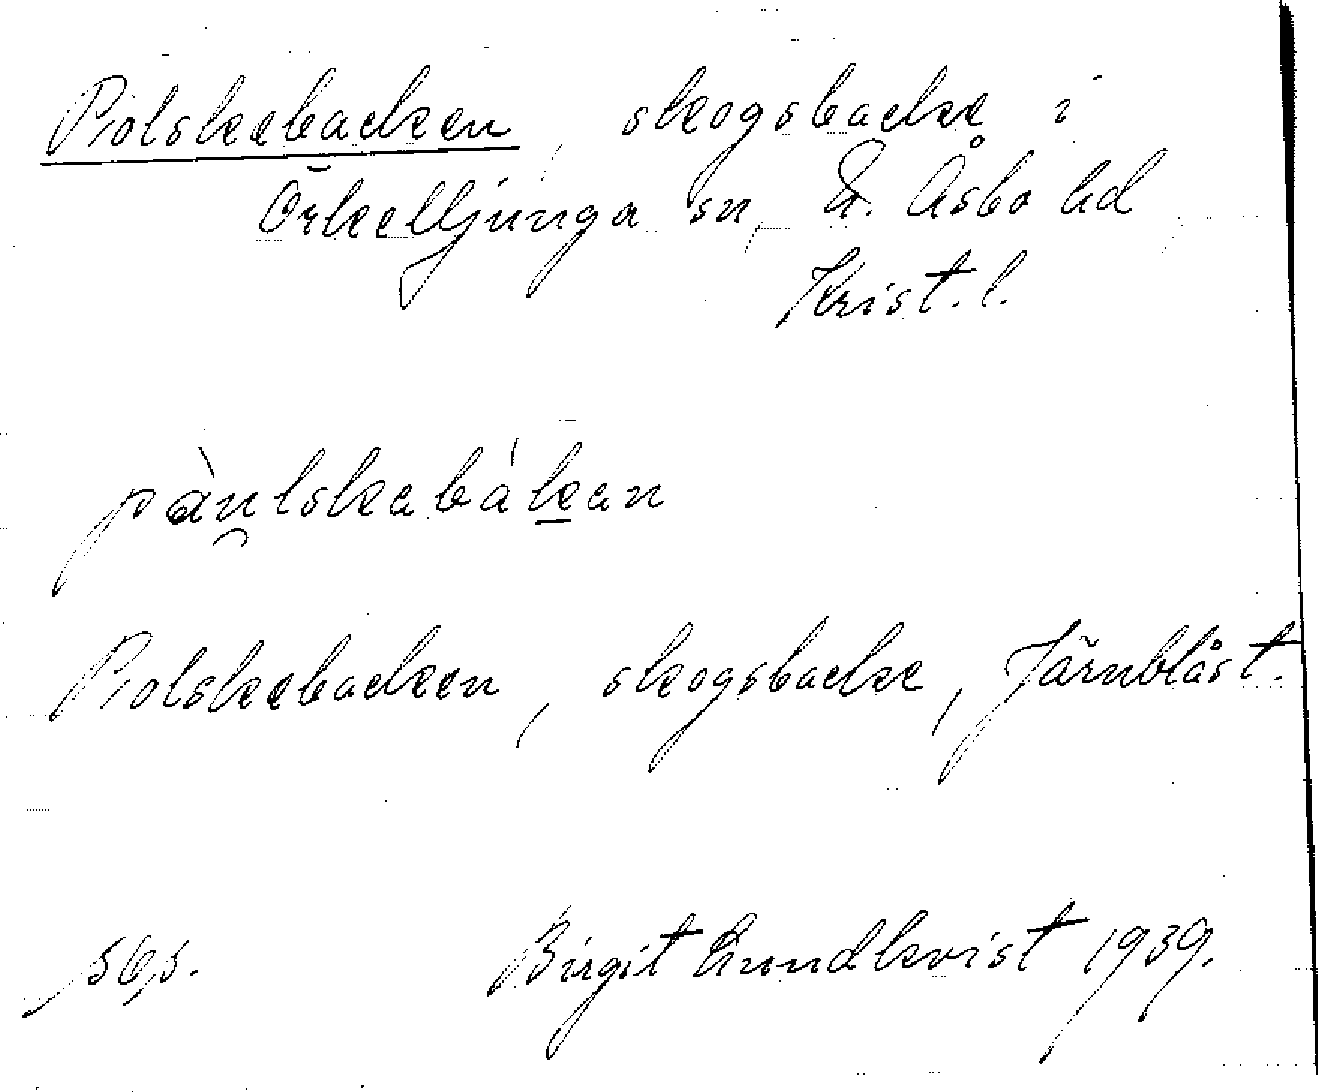 Polskebacken, skogsbacke i
Örkelljunga sn, N. Åsbo hd
Krist. l.
Polskebacken, skogsbacke, Järnblåst.
Birgit Lundkvist 1939.